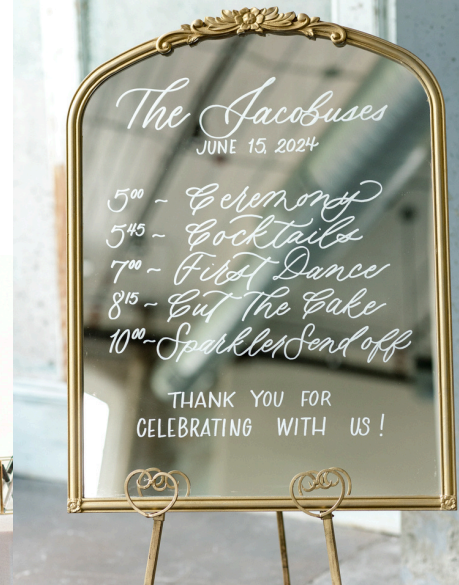 The Jacobuses
JUNE 15, 2024
5⁰⁰ ~ Ceremony
5⁴⁵ ~ Cocktails
7⁰⁰ ~ First Dance
8¹⁵ ~ Cut The Cake
10⁰⁰ ~ Sparkler Send off
THANK YOU FOR
CELEBRATING WITH US!